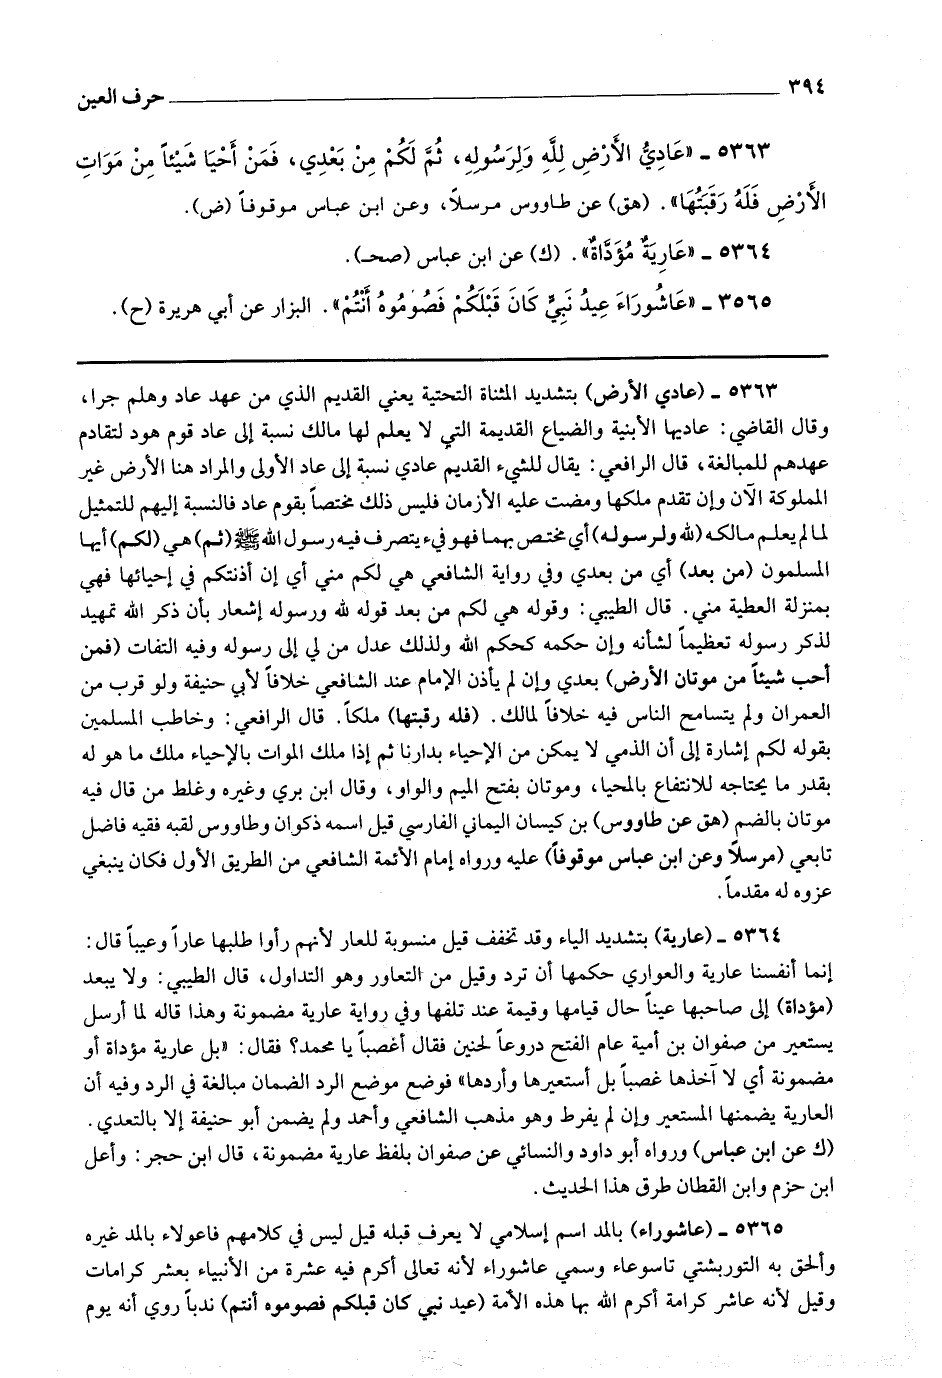 ٣٩٤ حرف العين
٥٣٦٣ ـ «عَادِيُّ الأَرْضِ لِلَّهِ وَلِرَسُولِهِ، ثُمَّ لَكُمْ مِنْ بَعْدِي، فَمَنْ أَحْيَا شَيْئاً مِنْ مَوَاتِ
الأَرْضِ فَلَهُ رَقَبَتُهَا». (هق) عن طاووس مرسلاً، وعن ابن عباس موقوفاً (ض).
٥٣٦٤ ـ «عَارِيَةٌ مُؤَدَّاةٌ». (ك) عن ابن عباس (صحـ).
٣٥٦٥ ـ «عَاشُورَاءَ عِيدُ نَبِيٍّ كَانَ قَبْلَكُمْ فَصُومُوهُ أَنْتُمْ». البزار عن أبي هريرة (ح).
٥٣٦٣ ـ (عادي الأرض) بتشديد المثناة التحتية يعني القديم الذي من عهد عاد وهلم جرا،
وقال القاضي: عاديها الأبنية والضياع القديمة التي لا يعلم لها مالك نسبة إلى عاد قوم هود لتقادم
عهدهم للمبالغة، قال الرافعي: يقال للشيء القديم عادي نسبة إلى عاد الأولى والمراد هنا الأرض غير
المملوكة الآن وإن تقدم ملكها ومضت عليه الأزمان فليس ذلك مختصاً بقوم عاد فالنسبة إليهم للتمثيل
لما لم يعلم مالكه (لله ولرسوله) أي مختص بهما فهو فيء يتصرف فيه رسول الله ﷺ (ثم) هي (لكم) أيها
المسلمون (من بعد) أي من بعدي وفي رواية الشافعي هي لكم مني أي إن أذنتكم في إحيائها فهي
بمنزلة العطية مني. قال الطيبي: وقوله هي لكم من بعد قوله لله ورسوله إشعار بأن ذكر الله تمهيد
لذكر رسوله تعظيماً لشأنه وإن حكمه كحكم الله ولذلك عدل من لي إلى رسوله وفيه التفات (فمن
أحب شيئاً من موتان الأرض) بعدي وإن لم يأذن الإمام عند الشافعي خلافاً لأبي حنيفة ولو قرب من
العمران ولم يتسامح الناس فيه خلافاً لمالك. (فله رقبتها) ملكاً. قال الرافعي: وخاطب المسلمين
بقوله لكم إشارة إلى أن الذمي لا يمكن من الإحياء بدارنا ثم إذا ملك الموات بالإحياء ملك ما هو له
بقدر ما يحتاجه للانتفاع بالمحيا، وموتان بفتح الميم والواو، وقال ابن بري وغيره وغلط من قال فيه
موتان بالضم (هق عن طاووس) بن كيسان اليماني الفارسي قيل اسمه ذكوان وطاووس لقبه فقيه فاضل
تابعي (مرسلاً وعن ابن عباس موقوفاً) عليه ورواه إمام الأئمة الشافعي من الطريق الأول فكان ينبغي
عزوه له مقدماً.
٥٣٦٤ ـ (عارية) بتشديد الياء وقد تخفف قيل منسوبة للعار لأنهم رأوا طلبها عاراً وعيباً قال:
إنما أنفسنا عارية والعواري حكمها أن ترد وقيل من التعاور وهو التداول، قال الطيبي: ولا يبعد
(مؤداة) إلى صاحبها عيناً حال قيامها وقيمة عند تلفها وفي رواية عارية مضمونة وهذا قاله لما أرسل
يستعير من صفوان بن أمية عام الفتح دروعاً لحنين فقال أغصباً يا محمد؟ فقال: «بل عارية مؤداة أو
مضمونة أي لا آخذها غصباً بل أستعيرها وأردها» فوضع موضع الرد الضمان مبالغة في الرد وفيه أن
العارية يضمنها المستعير وإن لم يفرط وهو مذهب الشافعي وأحمد ولم يضمن أبو حنيفة إلا بالتعدي.
(ك عن ابن عباس) ورواه أبو داود والنسائي عن صفوان بلفظ عارية مضمونة، قال ابن حجر: وأعل
ابن حزم وابن القطان طرق هذا الحديث.
٥٣٦٥ ـ (عاشوراء) بالمد اسم إسلامي لا يعرف قبله قيل ليس في كلامهم فاعولاء بالمد غيره
وألحق به التوربشتي تاسوعاء وسمي عاشوراء لأنه تعالى أكرم فيه عشرة من الأنبياء بعشر كرامات
وقيل لأنه عاشر كرامة أكرم الله بها هذه الأمة (عيد نبي كان قبلكم فصوموه أنتم) ندباً روي أنه يوم